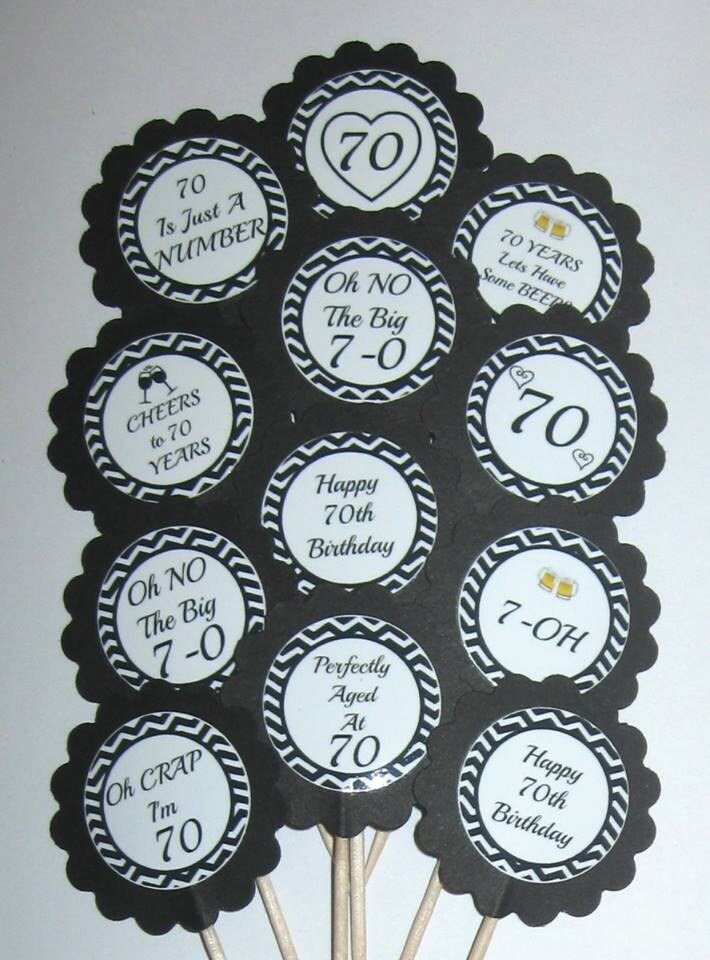 70
70
Is Just A
NUMBER
70 YEARS
Lets Have
Some BEER
Oh NO
The Big
7-0
CHEERS
to 70
YEARS
70
Happy
70th
Birthday
Oh NO
The Big
7-0
7-OH
Perfectly
Aged
At
70
Oh CRAP
I'm
70
Happy
70th
Birthday